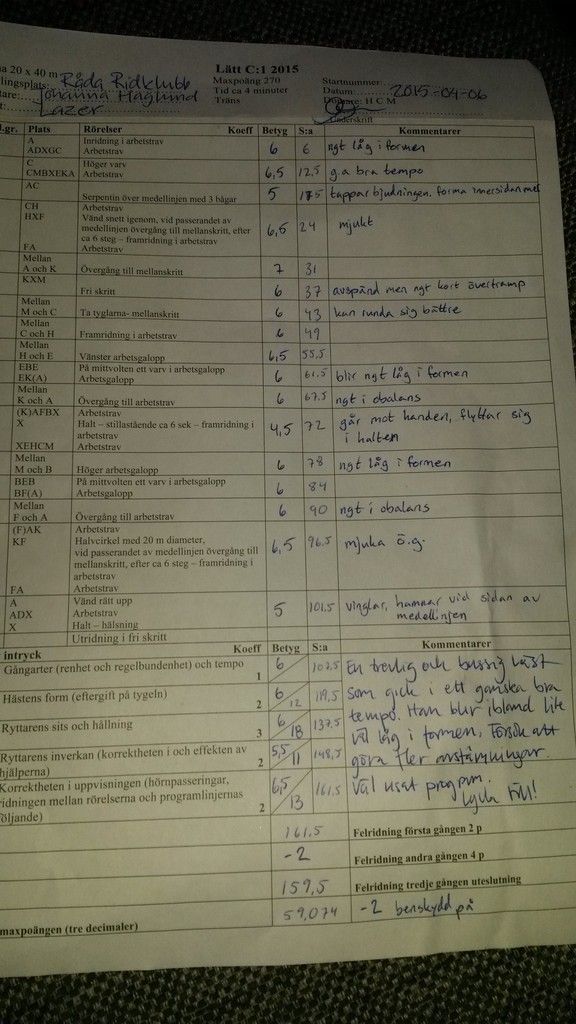 a 20 x 40 m
Lätt C:1 2015
Maxpoäng 270
Tid ca 4 minuter
Träns
llingsplats: Råda Ridklubb
tare: Johanna Haglund
Lazer
Startnummer:
Datum: 2015-04-06
Domare: H C M
Underskrift
Lgr. Plats Rörelser Koeff Betyg S:a Kommentarer
A Inridning i arbetstrav
ADXGC Arbetstrav 6 6 ngt låg i formen
C Höger varv
CMBXEKA Arbetstrav 6,5 12,5 g.a bra tempo
AC Serpentin över medellinjen med 3 bågar 5 17,5 tappar bjudningen. forma innersidan mer
CH Arbetstrav
HXF Vänd snett igenom, vid passerandet av
medellinjen övergång till mellanskritt, efter
ca 6 steg – framridning i arbetstrav 6,5 24 mjukt
FA Arbetstrav
Mellan
A och K Övergång till mellanskritt 7 31
KXM Fri skritt 6 37 avspänd men ngt kort övertramp
Mellan
M och C Ta tyglarna- mellanskritt 6 43 kan runda sig bättre
Mellan
C och H Framridning i arbetstrav 6 49
Mellan
H och E Vänster arbetsgalopp 6,5 55,5
EBE På mittvolten ett varv i arbetsgalopp
EK(A) Arbetsgalopp 6 61.5 blir ngt låg i formen
Mellan
K och A Övergång till arbetstrav 6 67.5 ngt i obalans
(K)AFBX Arbetstrav
X Halt – stillastående ca 6 sek – framridning i
arbetstrav 4,5 72 går mot handen, flyttar sig
i halten
XEHCM Arbetstrav
Mellan
M och B Höger arbetsgalopp 6 78 ngt låg i formen
BEB På mittvolten ett varv i arbetsgalopp
BF(A) Arbetsgalopp 6 84
Mellan
F och A Övergång till arbetstrav 6 90 ngt i obalans
(F)AK Arbetstrav
KF Halvcirkel med 20 m diameter,
vid passerandet av medellinjen övergång till
mellanskritt, efter ca 6 steg – framridning i
arbetstrav 6,5 96,5 mjuka ö.g.
FA Arbetstrav
A Vänd rätt upp
ADX Arbetstrav 5 101,5 vinglar, hamnar vid sidan av
medellinjen
X Halt – hälsning
Utridning i fri skritt
intryck Koeff Betyg S:a Kommentarer
Gångarter (renhet och regelbundenhet) och tempo 1 6 107,5
Hästens form (eftergift på tygeln) 2 6/12 119,5
Ryttarens sits och hållning 3 6/18 137,5
Ryttarens inverkan (korrektheten i och effekten av
hjälperna) 2 5,5/11 148,5
Korrektheten i uppvisningen (hörnpasseringar,
ridningen mellan rörelserna och programlinjernas
följande) 2 6,5/13 161,5
En trevlig och bussig häst
som gick i ett ganska bra
tempo. Han blir ibland lite
väl låg i formen. Försök att
göra fler avstämningar.
Väl visat program.
Lyck till!
161.5 Felridning första gången 2 p
-2 Felridning andra gången 4 p
159,5 Felridning tredje gången uteslutning
maxpoängen (tre decimaler) 59,074 -2 benskydd på